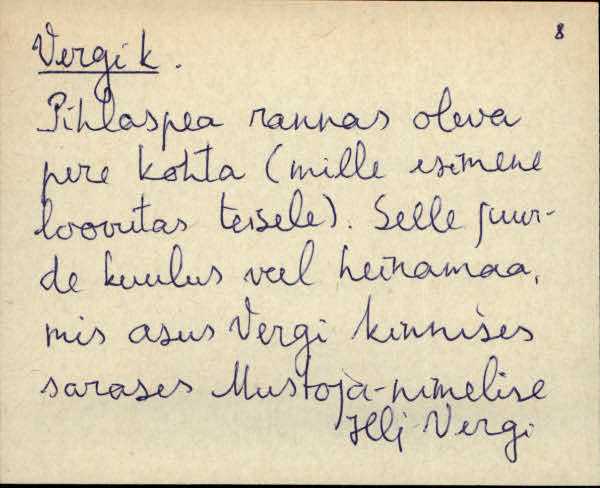 8
Vergi k.
Pihlaspea rannas oleva
pere kohta (mille esimene
loovutas teisele). Selle juur-
de kuulus veel heinamaa,
mis asus Vergi kinnises
sarases Mustoja-nimelise
Hlj Vergi